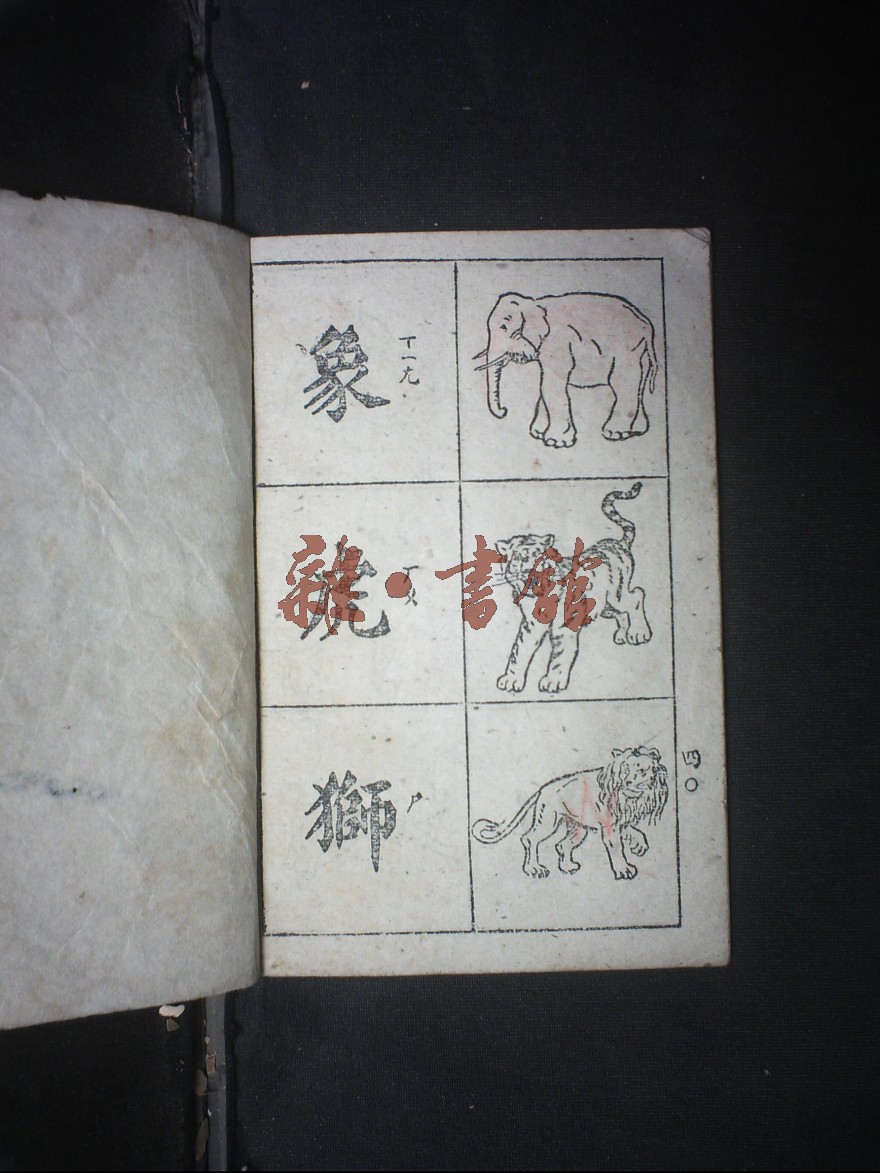 象 ㄒㄧㄤ
虎 ㄏㄨ
獅 ㄕ
四〇
雜·書館